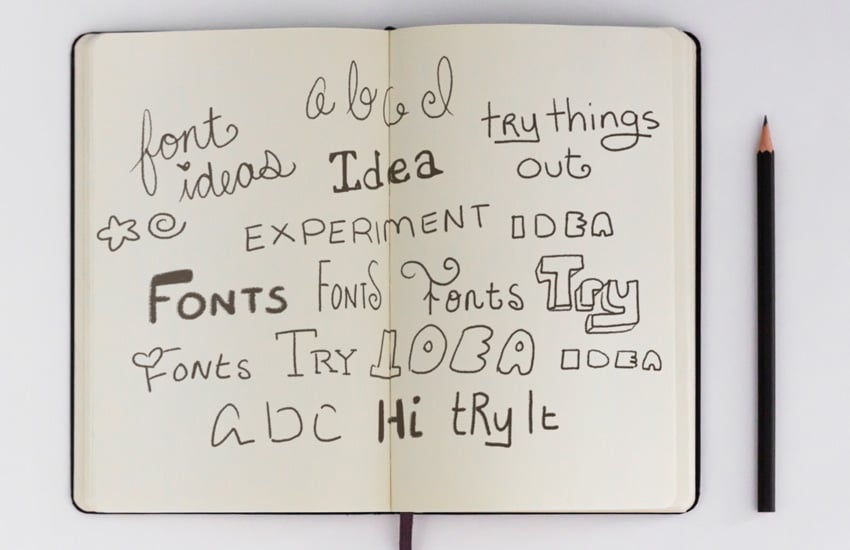 a b c d
font ideas
try things out
Idea
EXPERIMENT IDEA
FONTS FONTS Fonts Try
FONtS TRY IDEA IDEA
a b c Hi tRy It